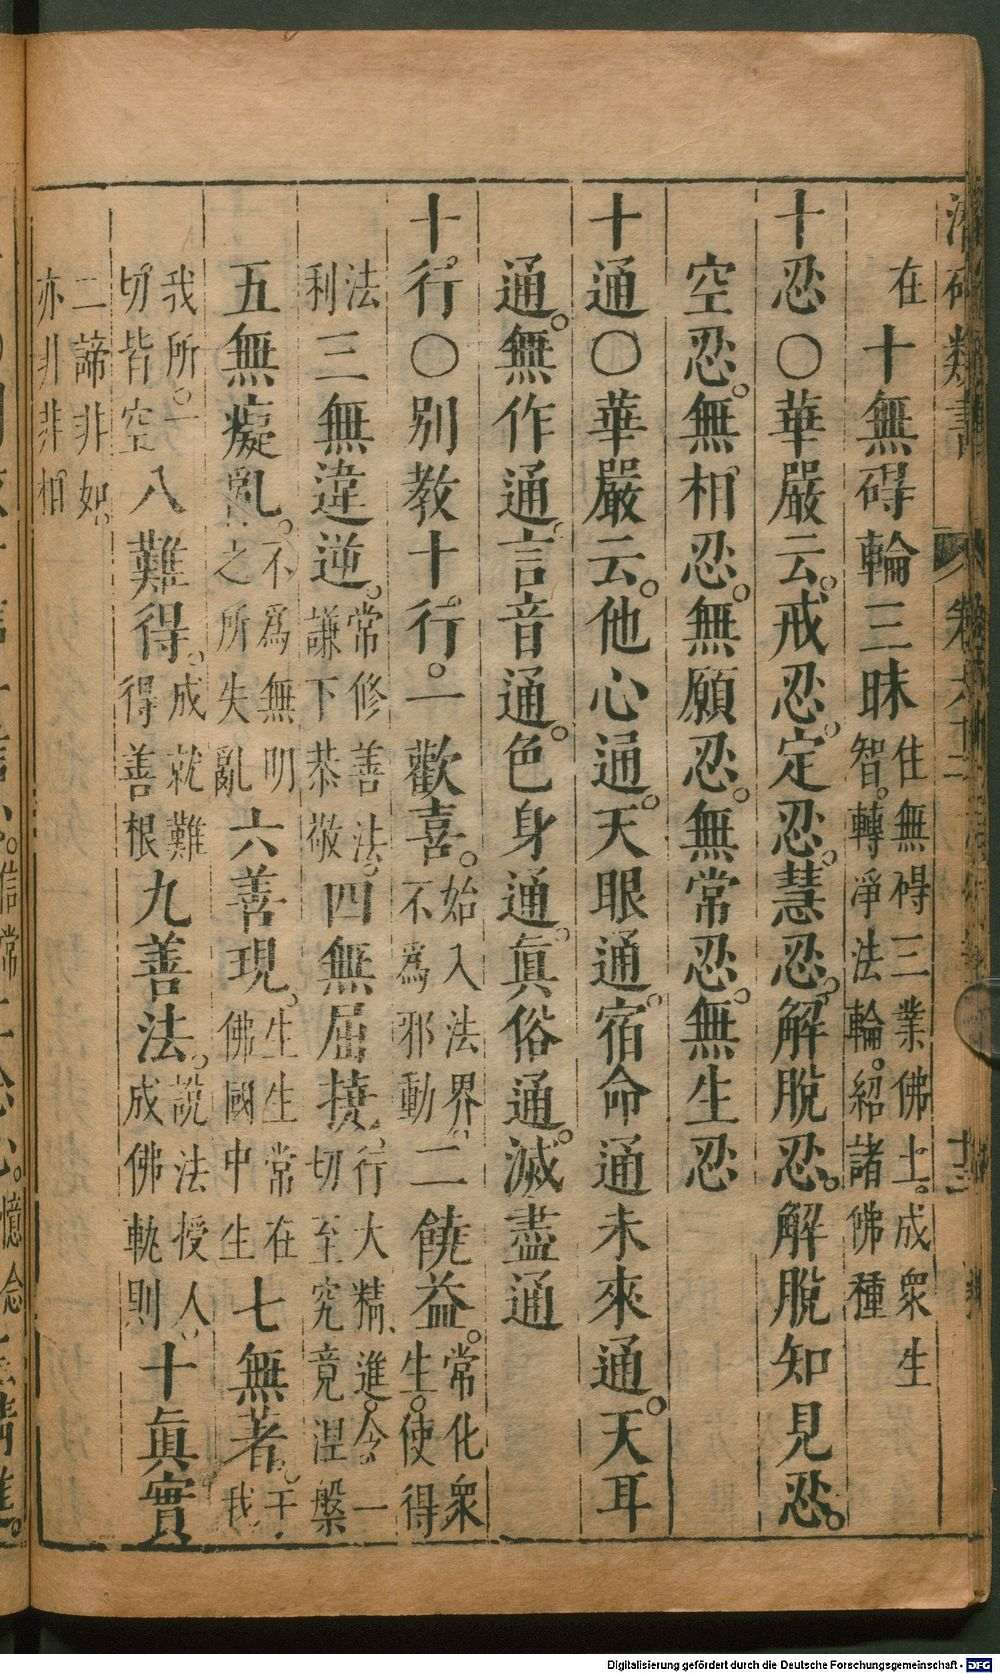 在十無碍輪三昧住無碍三業佛土。成衆生智。轉淨法輪。紹諸佛種
十忍〇華嚴云。戒忍。定忍。慧忍。解脫忍。解脫知見忍。
空忍。無相忍。無願忍。無常忍。無生忍
十通〇華嚴云。他心通。天眼通。宿命通未來通。天耳
通。無作通。言音通。色身通。眞俗通。滅盡通
十行〇別教十行。一歡喜。始入法界不爲邪動二饒益。常化衆生。使得
法利三無違逆。常修善法。謙下恭敬四無屈撓行大精進。令一切至究竟涅槃
五無癡亂。不爲無明之所失亂六善現。生生常在佛國中生七無著。于我
我所。一切皆空八難得。成就難得善根九善法。說法授人成佛軌則十眞實
二諦非如。亦非非相
Digitalisierung gefördert durch die Deutsche Forschungsgemeinschaft - DFG